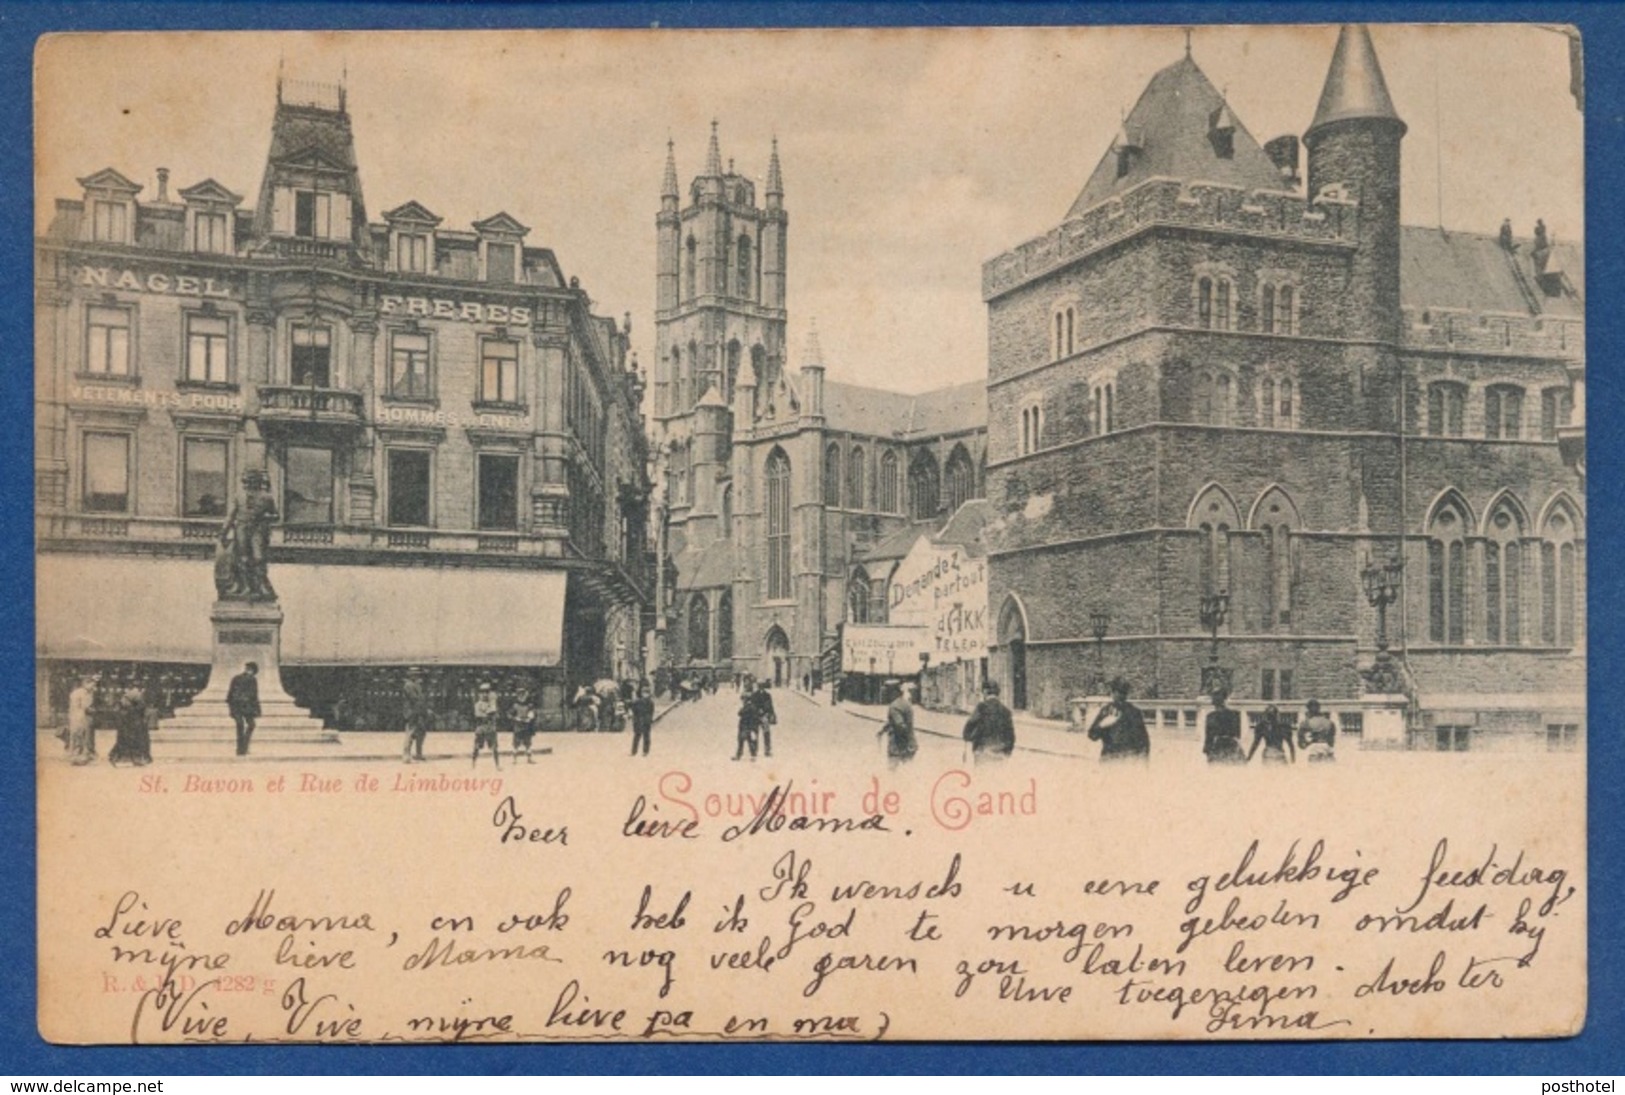 NAGEL FRERES
VÊTEMENTS POUR HOMMES ENF
Demandez
partout
d'AKK
TELEP
St. Bavon et Rue de Limbourg
Souvenir de Gand
Zeer lieve Mama.
Ik wensch u eene gelukkige feestdag,
Lieve Mama, en ook heb ik God te morgen gebeden omdat hij
mijne lieve Mama nog veele jaren zou laten leven.
Uwe toegenegen dochter
Irma.
R. & J. D. 4282 g
(Vive, Vive, mijne lieve pa en ma)
www.delcampe.net
posthotel